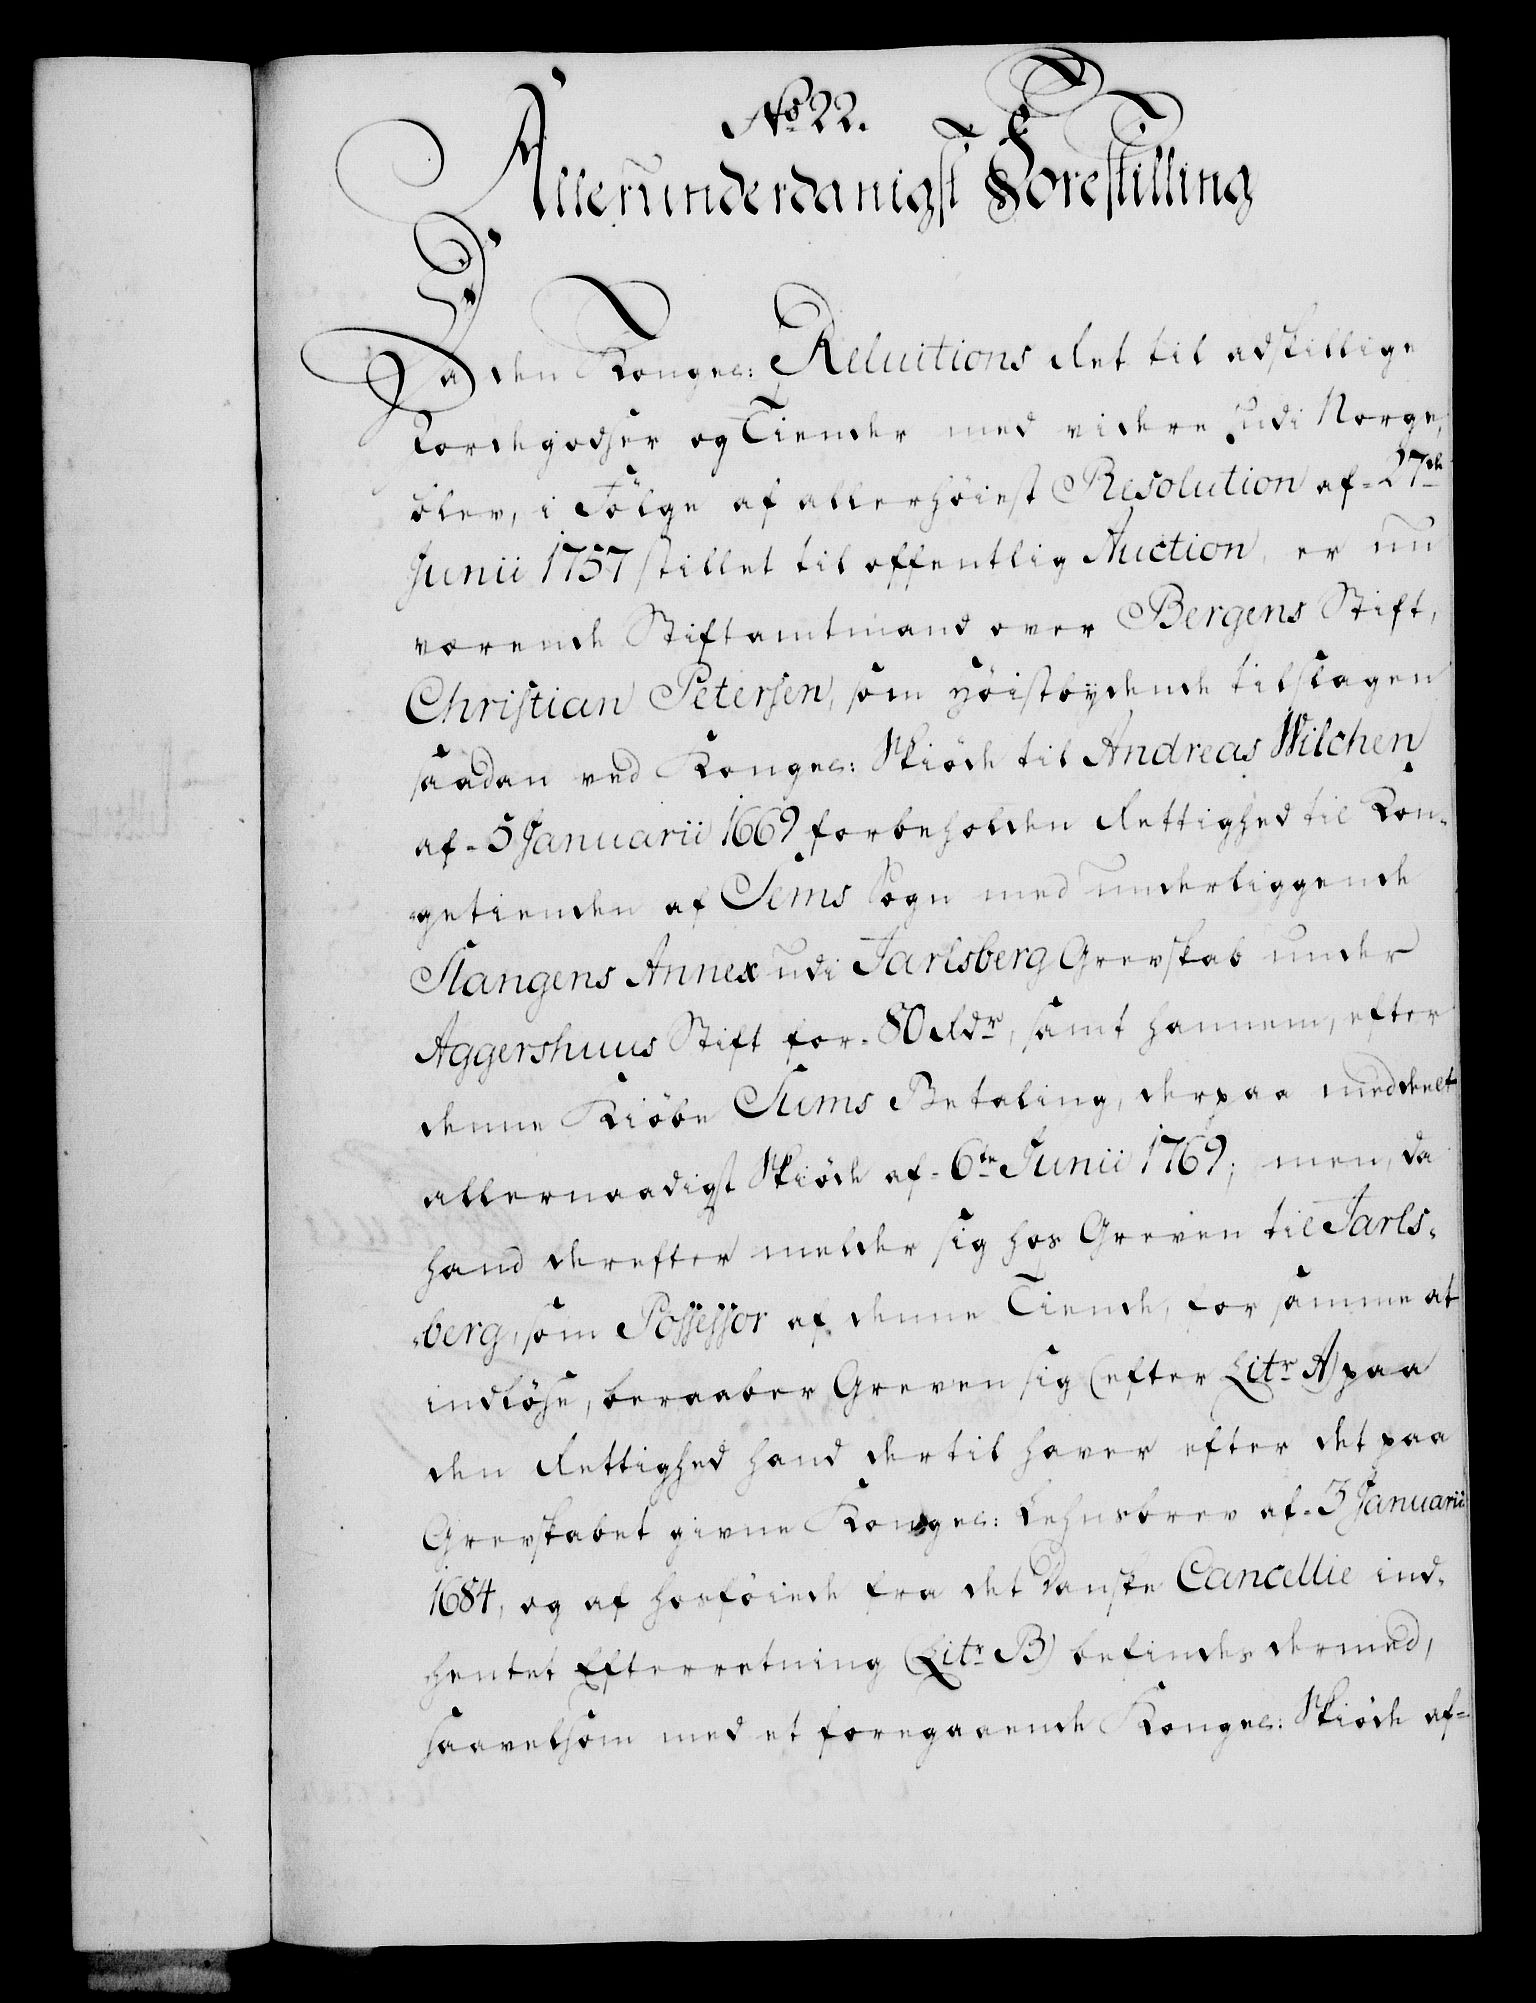 No. 22.
Allerunderdanigst Forestilling
Da den Kongel: Reluitions Ret til adskillige
Jordegodser og Tiender med videre udi Norge,
blev, i Følge af allerhøiest Resolution af 27de
Junii 1757 stillet til offentlig Auction, er nu
værende Stiftamtmand over Bergens Stift,
Christian Petersen, som høistbydende tilslagen
saadan ved Kongel: Skiøde til Andreas Wilchen
af 5 Januarii 1669 forbeholden Rettighed til Kon-
getienden af Sems Sogn med underliggende
Slangens Annex udi Jarlsberg Grevskab under
Aggershuus Stift for 80 Rdr, samt hannem, efter
denne Kiøbe Sums Betaling, derpaa meddeelt
allernaadigst Skiøde af 6te Junii 1769; men, da
hand derefter melder sig hos Greven til Jarls-
berg, som Possessor af denne Tiende, for samme at
indløse, beraaber Greven sig (efter Litr A) paa
den Rettighed hand dertil haver efter det paa
Grevskabet givne Kongel: Lehnsbrev af 3 Januarii
1684, og af hosføiede fra det danske Cancellie ind-
hentet Efterretning (Litr B) befindes dermed,
saavelsom med et foregaaende Kongel: Skiøde af